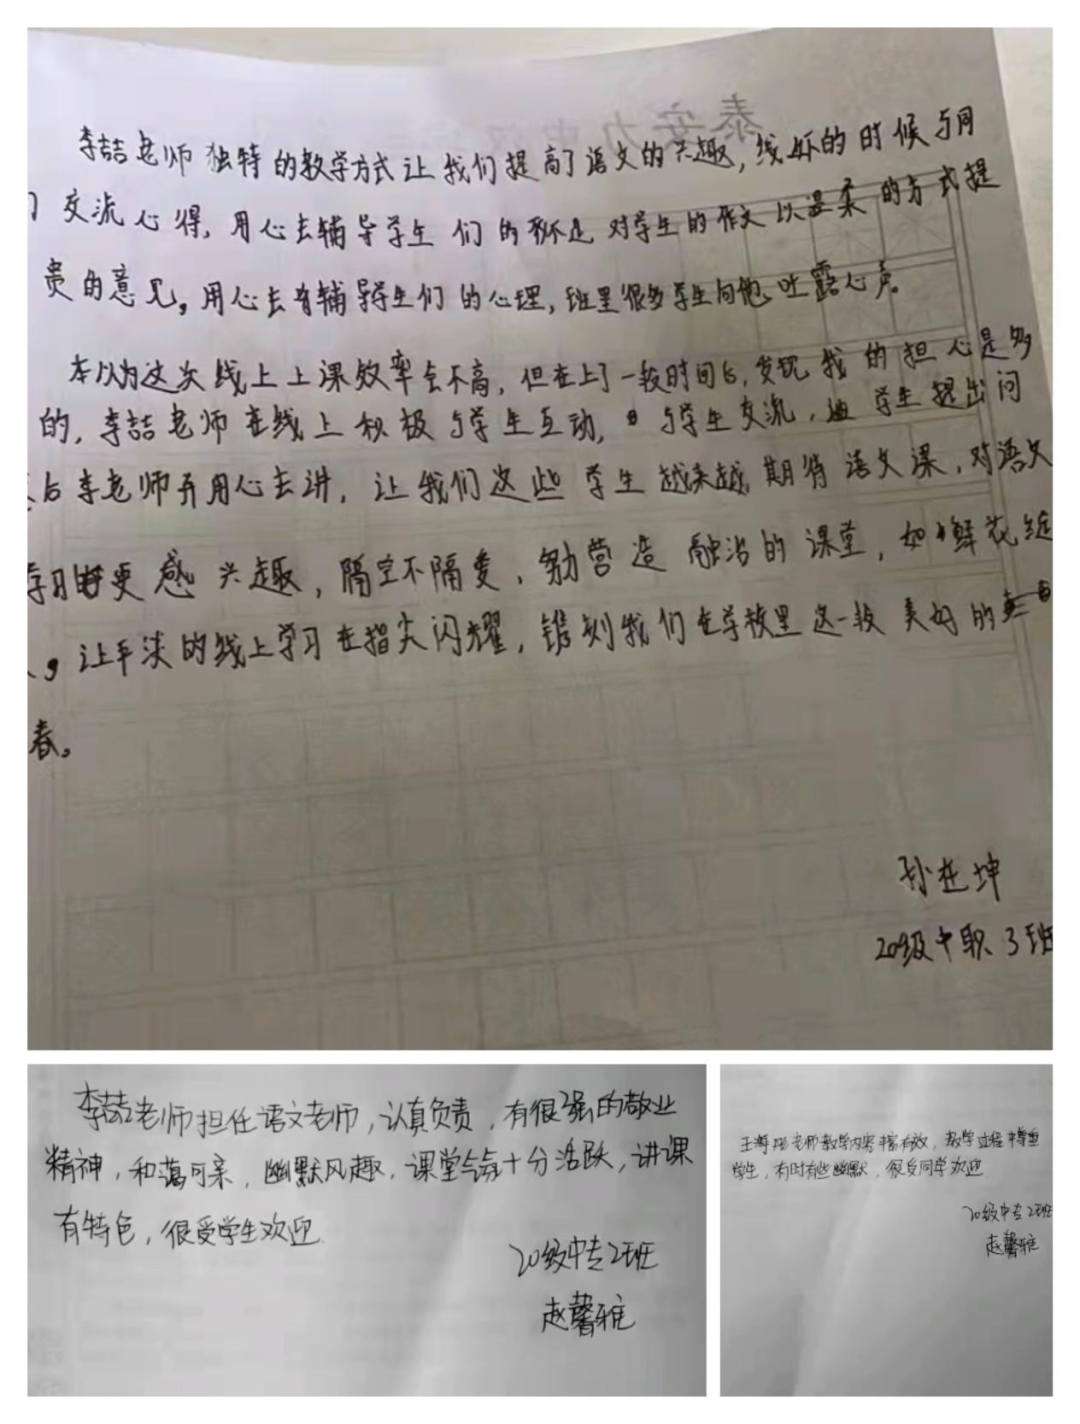 李喆老师独特的教学方式让我们提高了语文的兴趣，线下的时候与同
们交流心得，用心去辅导学生们的不足 对学生的作文以温柔的方式提
贵的意见。用心去辅导学生们的心理，班里很多学生向他吐露心声。
本以为这次线上上课效率会不高，但在上了一段时间后，发现我的担心是多
的，李喆老师在线上积极与学生互动，与学生交流，学生提出问
后李老师再用心去讲，让我们这些学生越来越期待语文课，对语文
学习更感兴趣，隔空不隔爱，营造融洽的课堂，如鲜花绽
，让平淡的线上学习在指尖闪耀，镌刻我们在学校里这一段美好的
春。
孙在坤
20级中职3班
李喆老师担任语文老师，认真负责，有很强的敬业
精神，和蔼可亲，幽默风趣，课堂气氛十分活跃，讲课
有特色，很受学生欢迎
20级中专2班
赵馨雅
王 老师教学内容丰富有效，教学过程中尊重
学生，有时有些幽默，很受同学欢迎
20级中专2班
赵馨雅
泰安